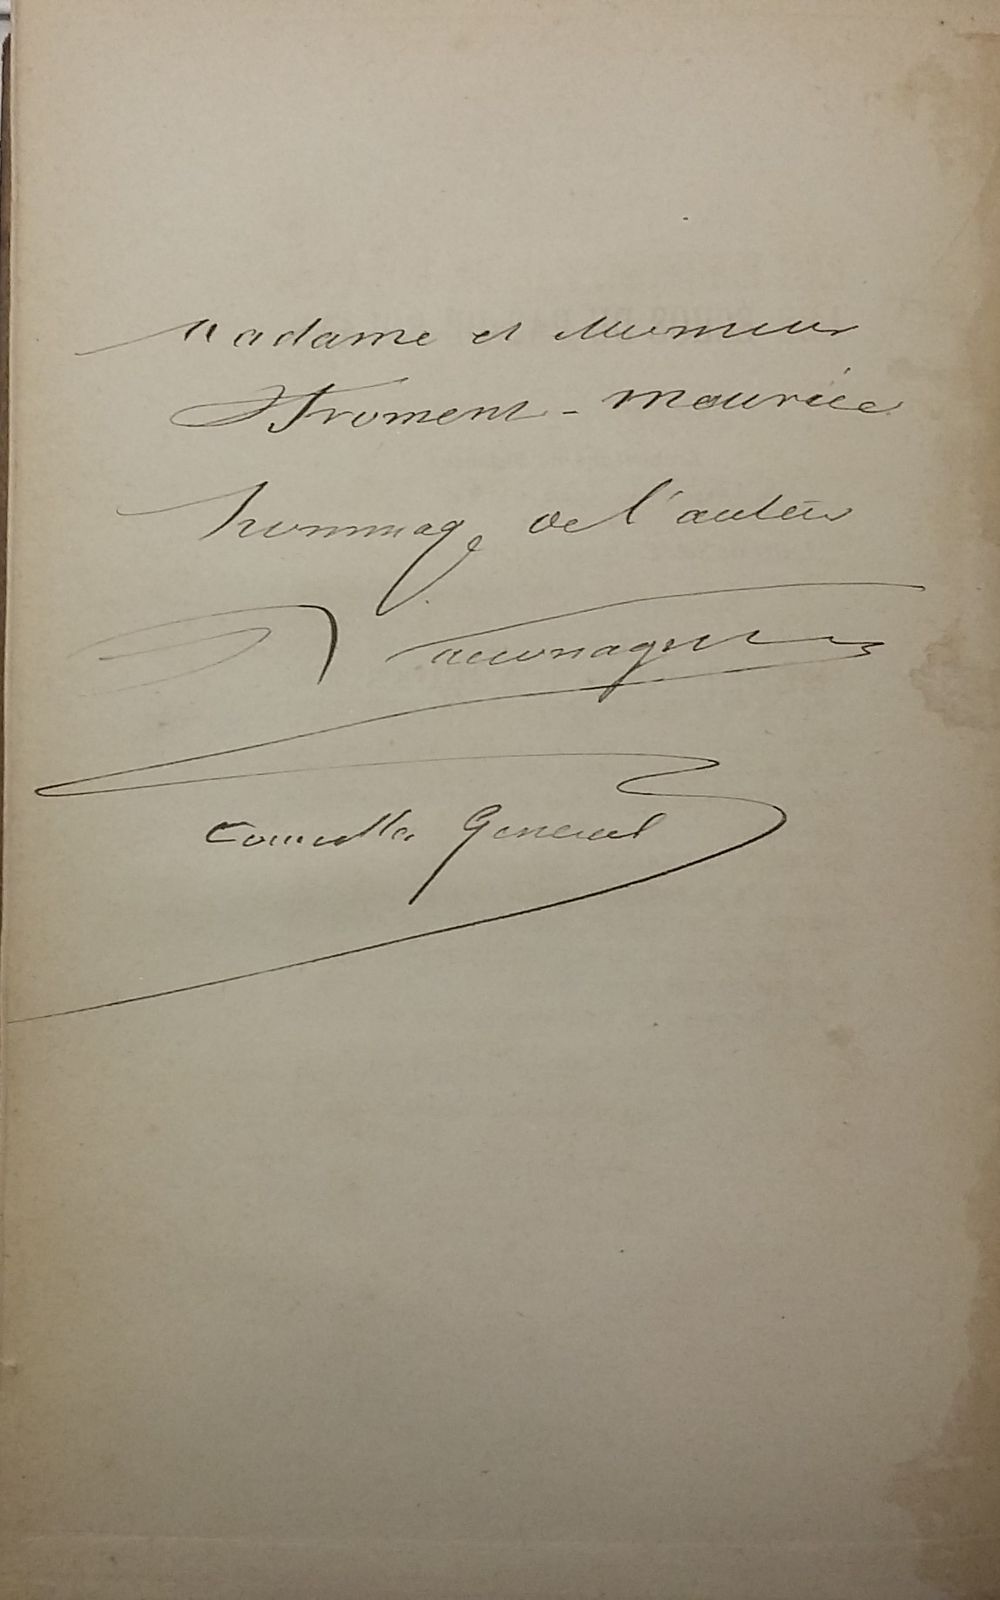 Madame et Monsieur
Froment-Meurice
hommage de l'auteur
Conseiller Général